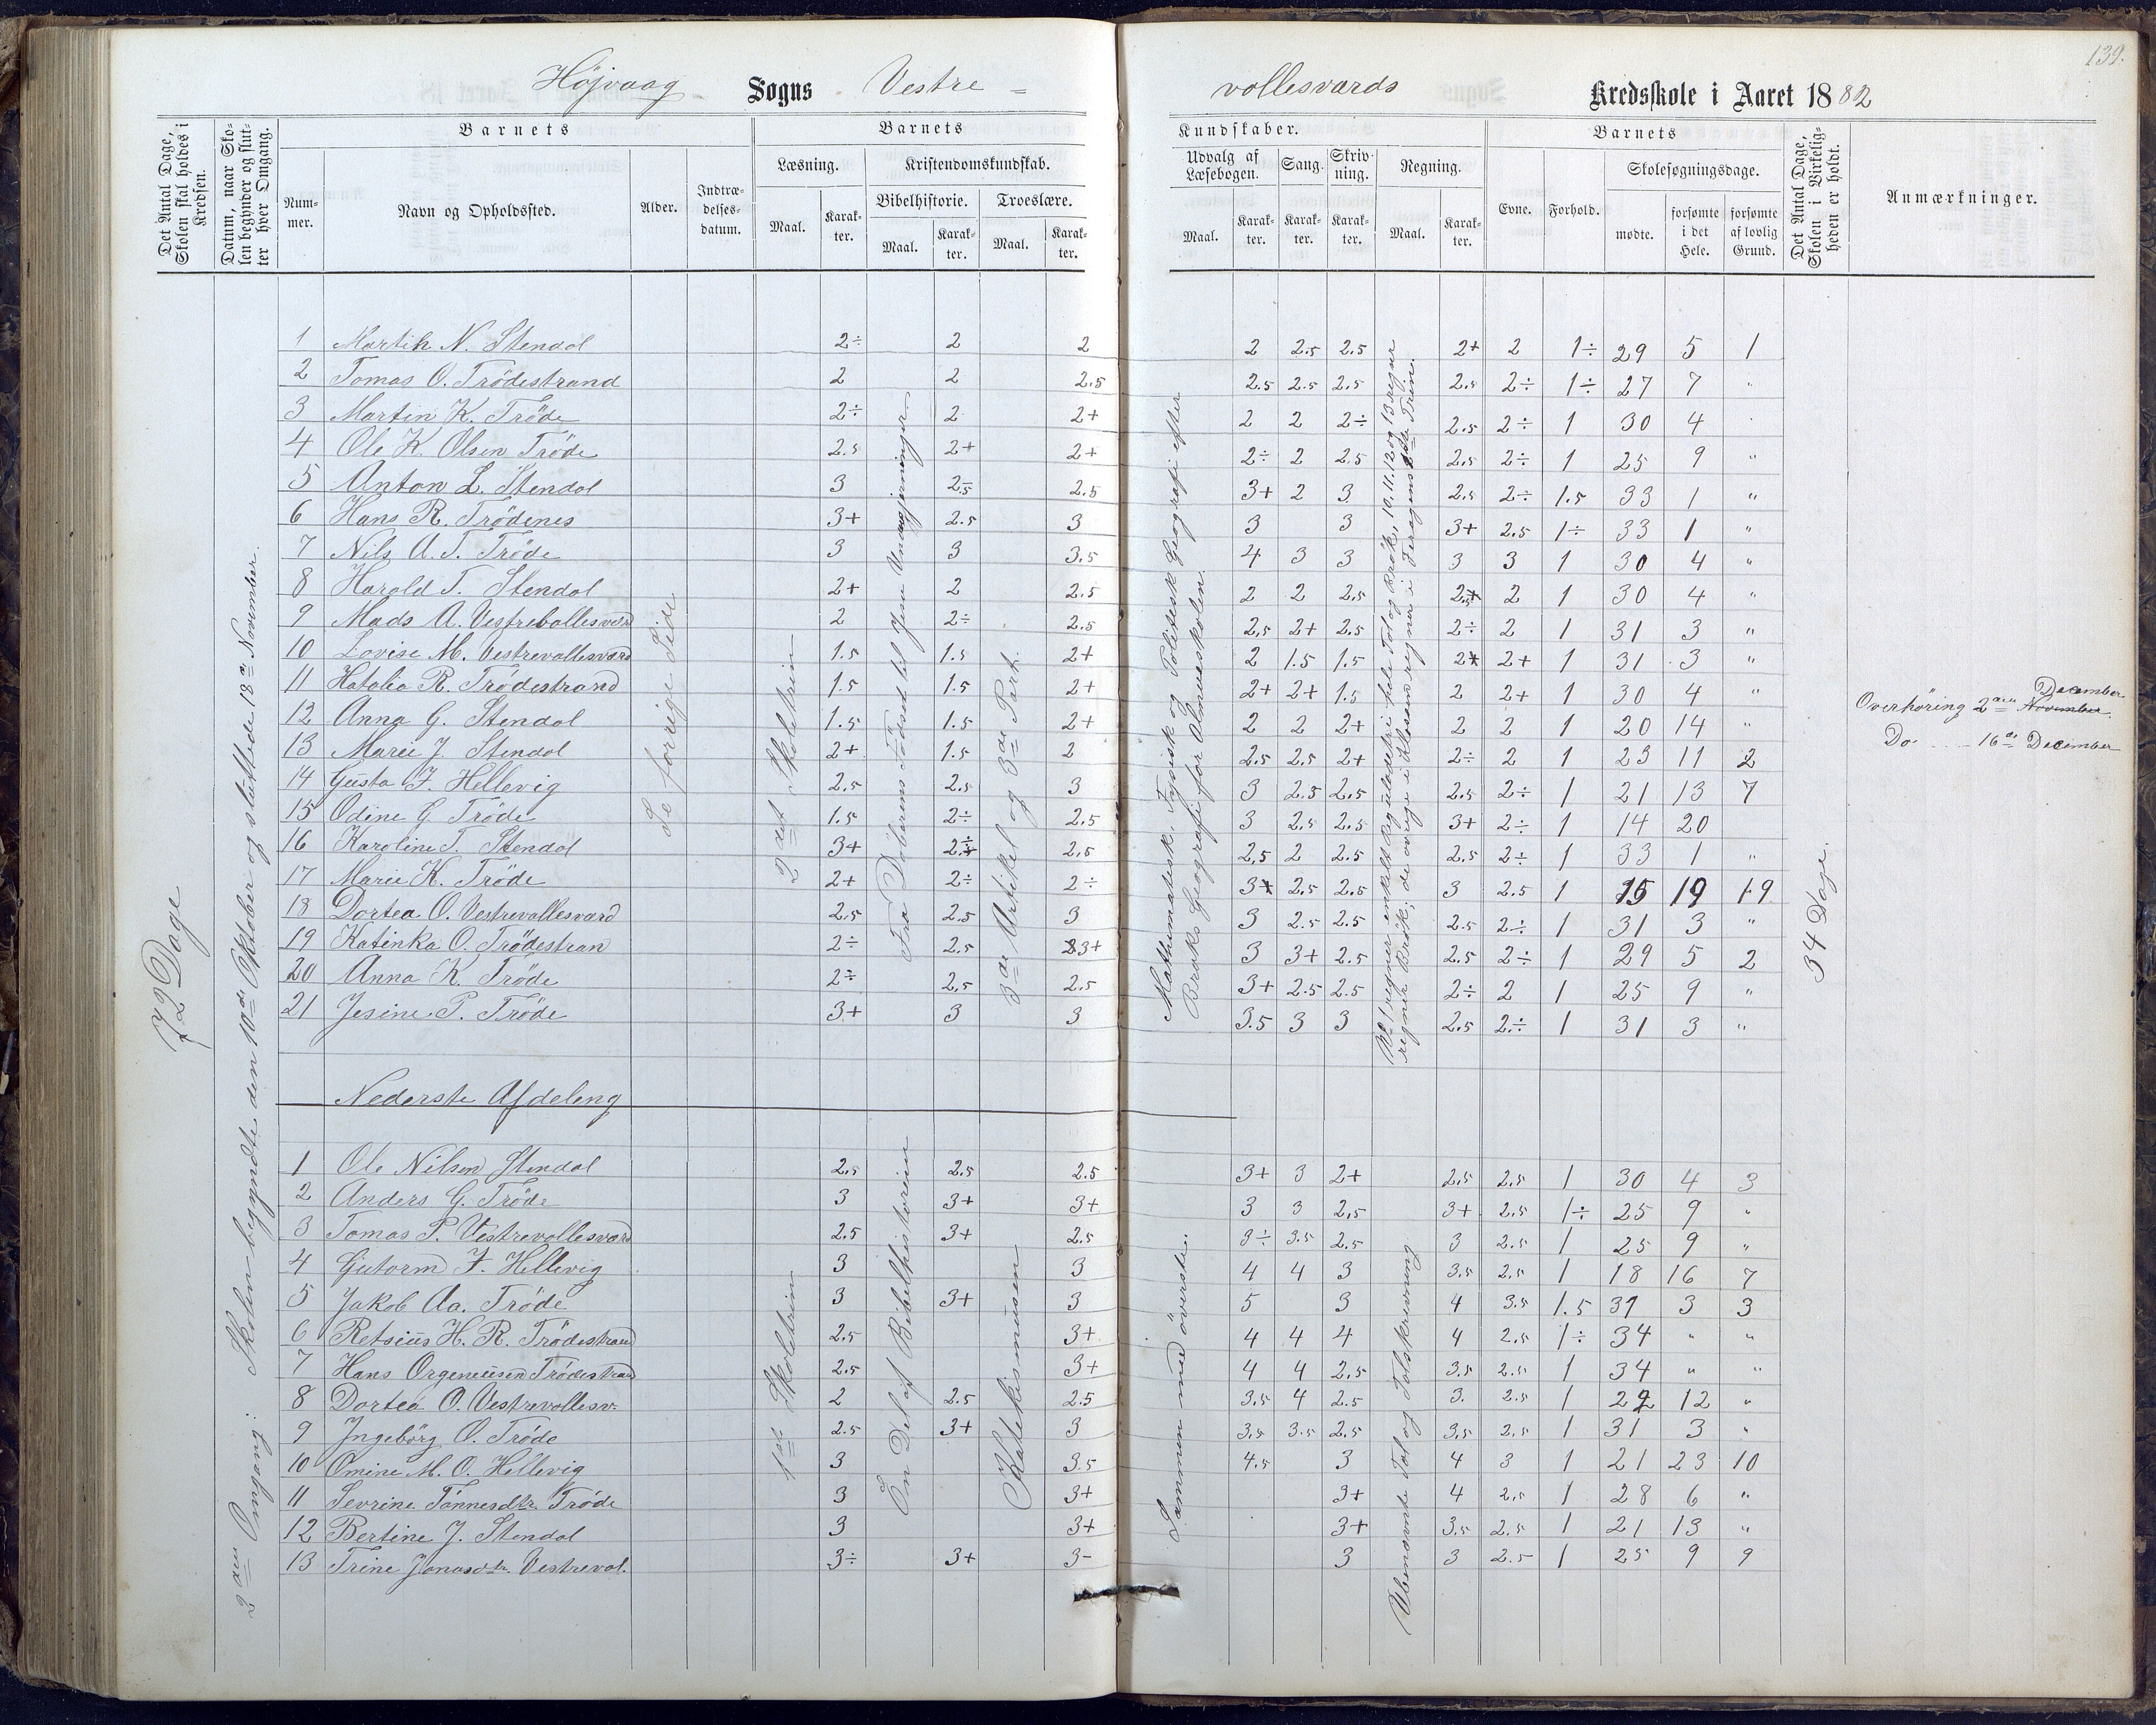 139.
Højvaag Sogns Vestre =
vollesværds Kredsskole i Aaret 1882
Det Antal Dage, Skolen skal holdes i Kredsen.
Datum, naar Skolen begynder og slutter hver Omgang.
Barnets
Nummer.
Navn og Opholdssted.
Alder.
Indtrædelsesdatum.
Barnets
Læsning.
Maal.
Karakter.
Kristendomskundskab.
Bibelhistorie.
Maal.
Karakter.
Troeslære.
Maal.
Karakter.
Kundskaber.
Udvalg af Læsebogen.
Maal.
Karakter.
Sang.
Karakter.
Skrivning.
Karakter.
Regning.
Maal.
Karakter.
Barnets
Evne.
Forhold.
Skolesøgningsdage.
mødte.
forsømte i det Hele.
forsømte af lovlig Grund.
Det Antal Dage, Skolen i Virkeligheden er holdt.
Anmærkninger.
72 Dage
2den Omgang: Skolen begyndte den 10de Oktober og sluttede 18de November.
Se forrige Side
2det Skoletrin
3de Artikel og 3de Part.
Mathematisk, Fysisk og Politisk Geografi efter
Geografi for Almueskolen.
34 Dage.
Overhøring 2den November. December
Do 16de December
1 Martin N. Stendal 2÷ 2 2 2 2.5 2.5 2+ 2 1÷ 29 5 1
2 Tomas O. Trödestrand 2 2 2.5 2.5 2.5 2.5 2.5 2÷ 1÷ 27 7 "
3 Martin K. Tröde 2÷ 2 2+ 2 2 2÷ 2.5 2÷ 1 30 4
4 Ole K. Olsen Tröde 2.5 2+ 2+ 2÷ 2 2.5 2.5 2÷ 1 25 9 "
5 Anton L. Stendal 3 2.5 2.5 3+ 2 3 2.5 2÷ 1.5 33 1 "
6 Hans R. Trödenes 3+ 2.5 3 3 3 3+ 2.5 1÷ 33 1 "
7 Nils A. T. Tröde 3 3 3.5 4 3 3 3 3 1 30 4 "
8 Harald T. Stendal 2+ 2 2.5 2 2 2.5 2.5 2 1 30 4 "
9 Mads A. Vestrebollesværd 2 2÷ 2.5 2.5 2+ 2.5 2÷ 2 1 31 3 "
10 Lovise M. Vestrevollesværd 1.5 1.5 2+ 2 1.5 1.5 2+ 2+ 1 31 3 "
11 Hatalia R. Trödestrand 1.5 1.5 2+ 2+ 2+ 1.5 2 2+ 1 30 4 "
12 Anna G. Stendal 1.5 1.5 2+ 2 2 2+ 2 2 1 20 14 "
13 Marie J. Stendal 2+ 1.5 2 2.5 2.5 2+ 2÷ 2 1 23 11 2
14 Gusta F. Hellevig 2.5 2.5 3 3 2.5 2.5 2.5 2÷ 1 21 13 7
15 Odine G Tröde 1.5 2÷ 2.5 3 2.5 2.5 3+ 2÷ 1 14 20
16 Karoline T. Stendal 3+ 2÷ 2.5 2.5 2 2.5 2.5 2÷ 1 33 1 "
17 Marie K. Tröde 2+ 2÷ 2÷ 3+ 2.5 2.5 3 2.5 1 15 19 19
18 Dortea O. Vestrevollesværd 2.5 2.5 3 3 2.5 2.5 2.5 2÷ 1 31 3 "
19 Katinka O. Trödestran 2÷ 2.5 3+ 3 3+ 2.5 2.5 2÷ 1 29 5 2
20 Anna K. Tröde 2÷ 2.5 2.5 3+ 2.5 2.5 2÷ 2 1 25 9 "
21 Jesine P. Tröde 3+ 3 3 3.5 3 3 2.5 2÷ 1 31 3 "
Nederste Afdeling
1ste Skoletrin
En Del af Bibelhistorien
Katekismusen
Sammen med överste.
Ubenævnte Tal og Talskrevning
1 Ole Nilsen Stendal 2.5 2.5 2.5 3+ 3 2+ 2.5 2.5 1 30 4 3
2 Anders G. Tröde 3 3+ 3+ 3 3 2.5 3+ 2.5 1÷ 25 9 "
3 Tomas P. Vestrevollesværd 2.5 3+ 2.5 3÷ 3.5 2.5 3 2.5 1 25 9 "
4 Gutorm F. Hellevig 3 3 4 4 3 3.5 2.5 1 18 16 7
5 Jakob Aa. Tröde 3 3+ 3 5 3 4 3.5 1.5 31 3 3
6 Retsius H. R. Trödestrand 2.5 3+ 4 4 4 4 2.5 1÷ 34 " "
7 Hans Orgeneusen Trödestrand 2.5 3+ 4 4 2.5 3.5 2.5 1 34 " "
8 Dortea O. Vestrevollesv. 2 2.5 2.5 3.5 4 2.5 3. 2.5 1 22 12 "
9 Ingebörg O. Tröde 2.5 3+ 3 3.5 3.5 2.5 3.5 2.5 1 31 3 "
10 Omine M. O. Hellevig 3 3.5 4.5 3 4 3 1 21 23 10
11 Sevrine Tönnesdtr. Tröde 3 3+ 3+ 4 2.5 1 28 6 "
12 Bertine J. Stendal 3 3+ 3+ 3.5 2.5 1 21 13 "
13 Trine Jonasdtr. Vestrevol. 3÷ 3+ 3- 3 3 2.5 1 25 9 9